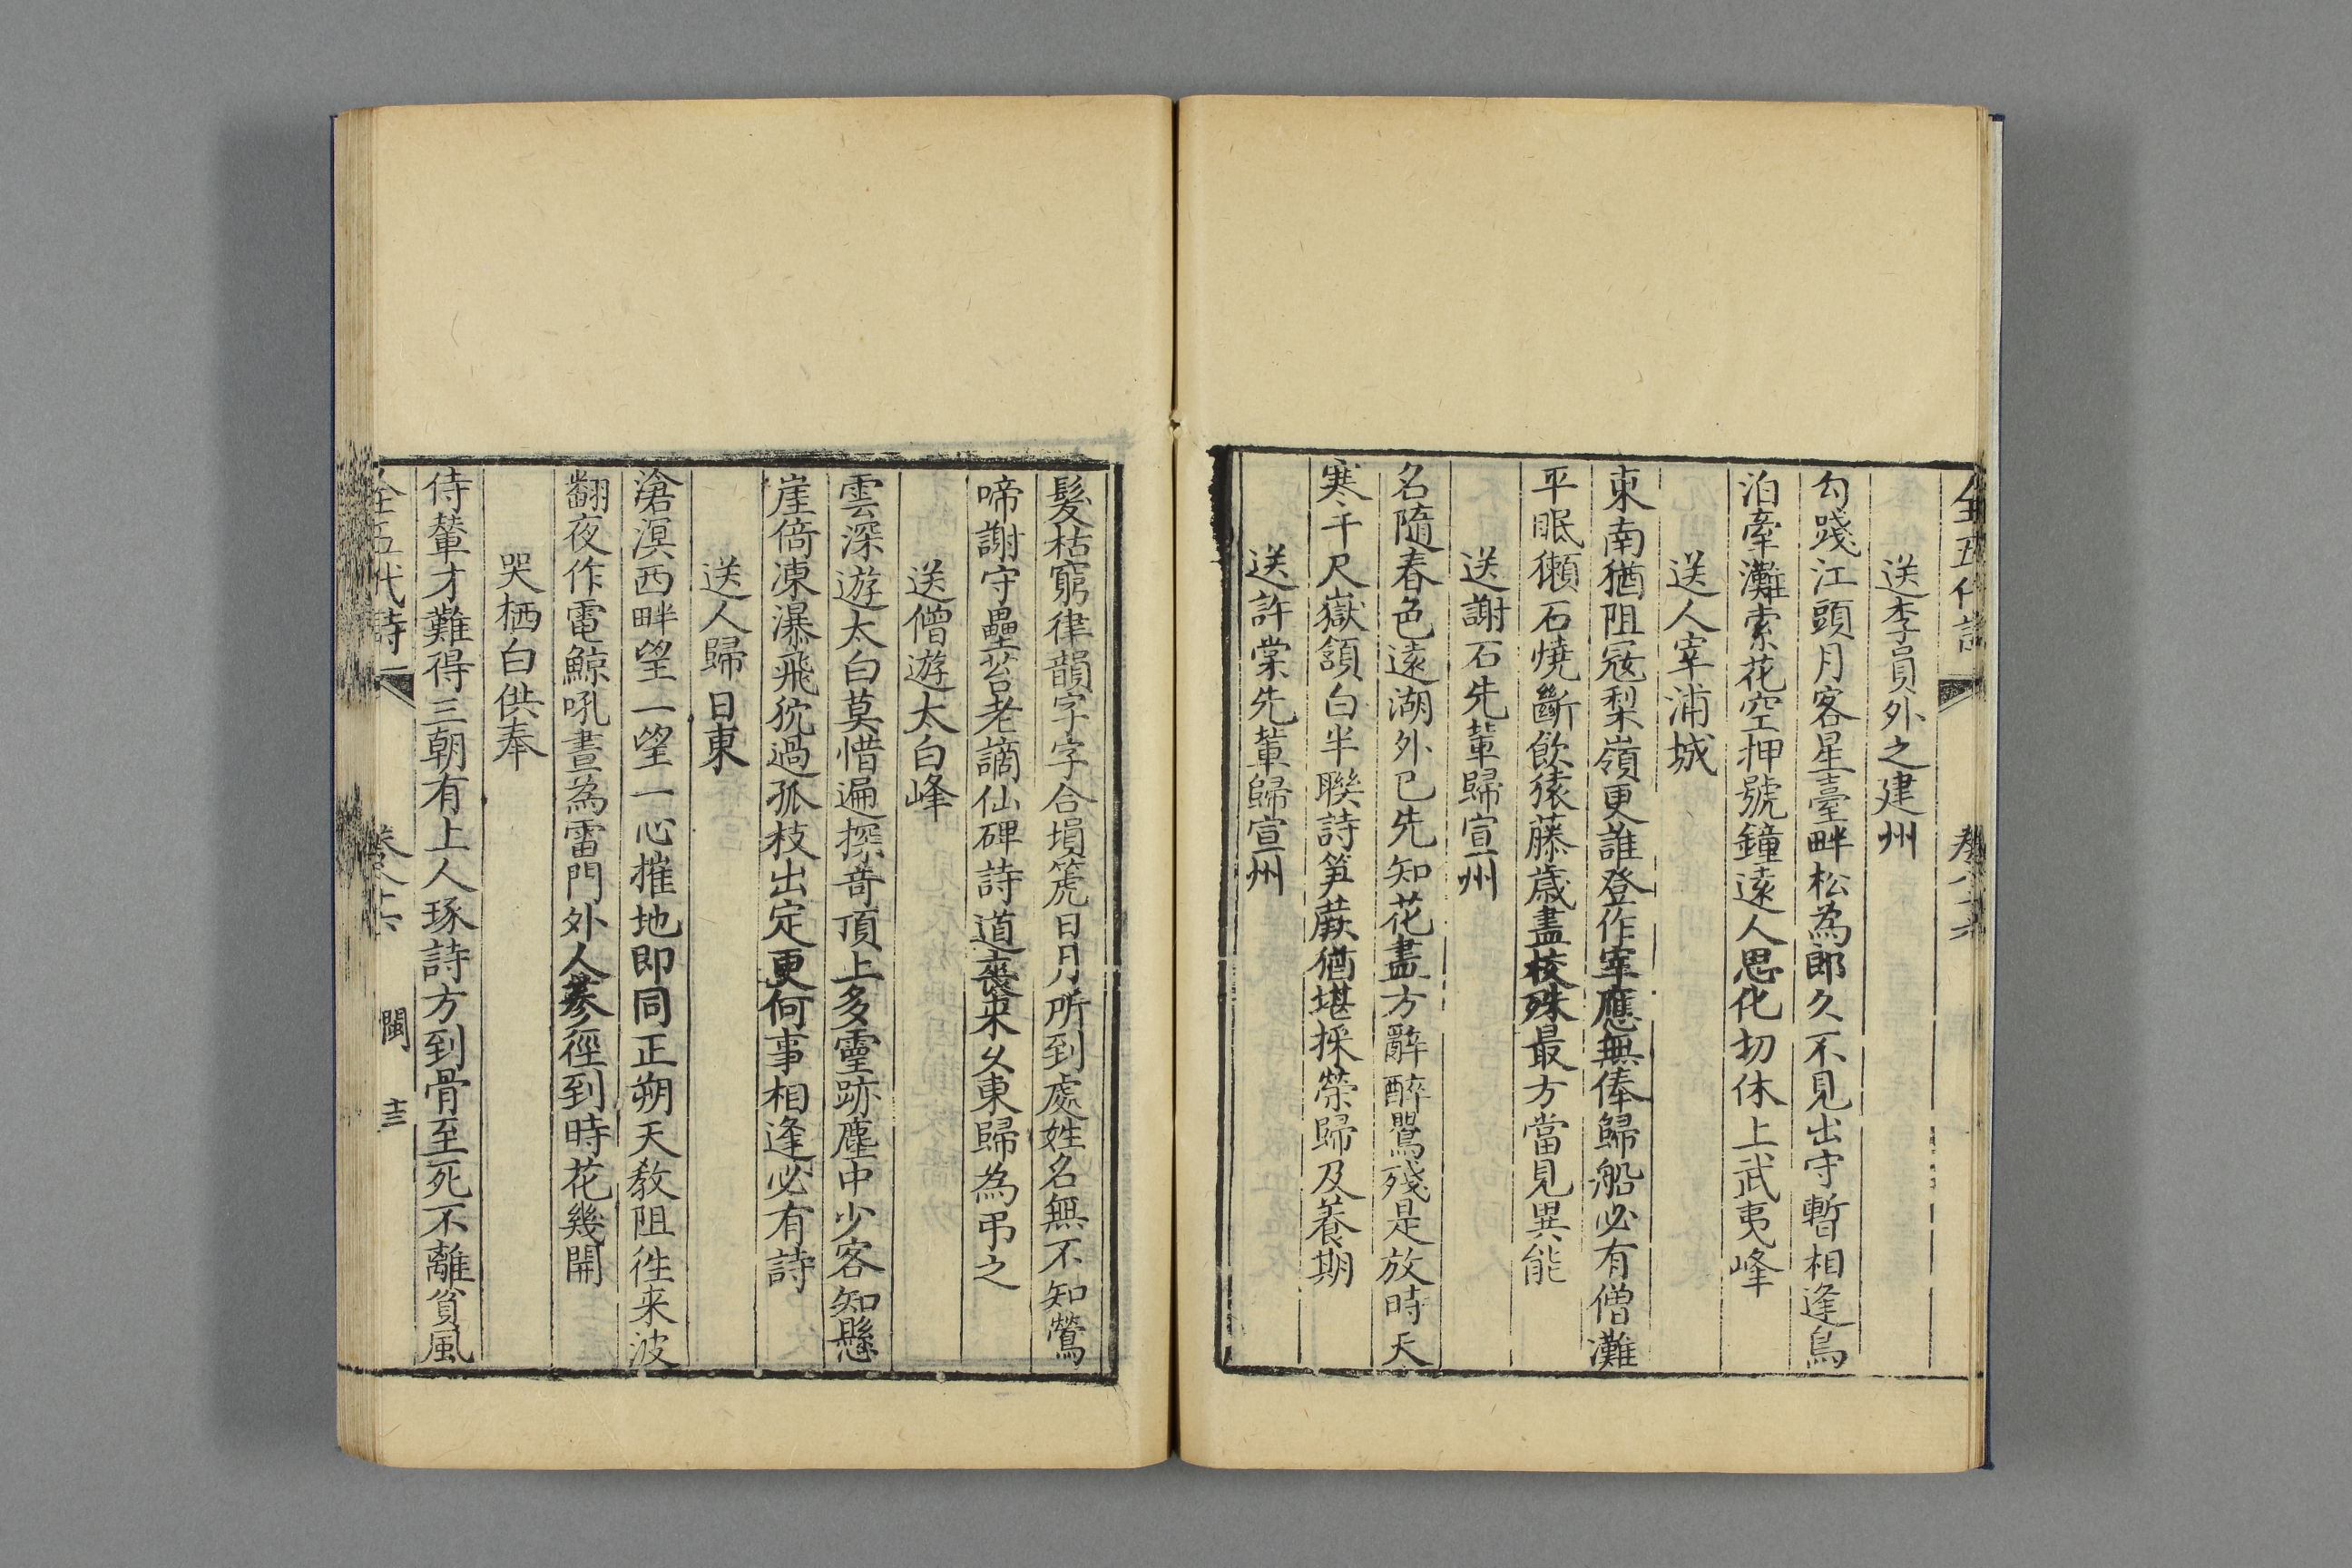 全五代詩
卷八十六
送李員外之建州
勾踐江頭月客星臺畔松為郎久不見出守暫相逢鳥
泊牽灘索花空押號鐘遠人思化切休上武夷峰
送人宰浦城
東南猶阻寇梨嶺更誰登作宰應無俸歸船必有僧灘
平眠獺石燒斷飲猿藤歲盡校殊最方當見異能
送謝石先輩歸宣州
名隨春色遠湖外已先知花盡方辭醉鸎殘是放時天
寒千尺嶽頷白半聯詩笋蕨猶堪採榮歸及養期
送許棠先輩歸宣州
髮枯窮律韻字字合塤篪日月所到處姓名無不知鶯
啼謝守壘苔老謫仙碑詩道喪来久東歸為弔之
送僧遊太白峰
雲深遊太白莫惜遍探奇頂上多靈跡塵中少客知懸
崖倚凍瀑飛狖過孤枝出定更何事相逢必有詩
送人歸日東
滄溟西畔望一望一心摧地即同正朔天教阻徃来波
翻夜作電鯨吼晝為雷門外人參徑到時花幾開
哭栖白供奉
侍輦才難得三朝有上人琢詩方到骨至死不離貧風
全五代詩
閩
十三